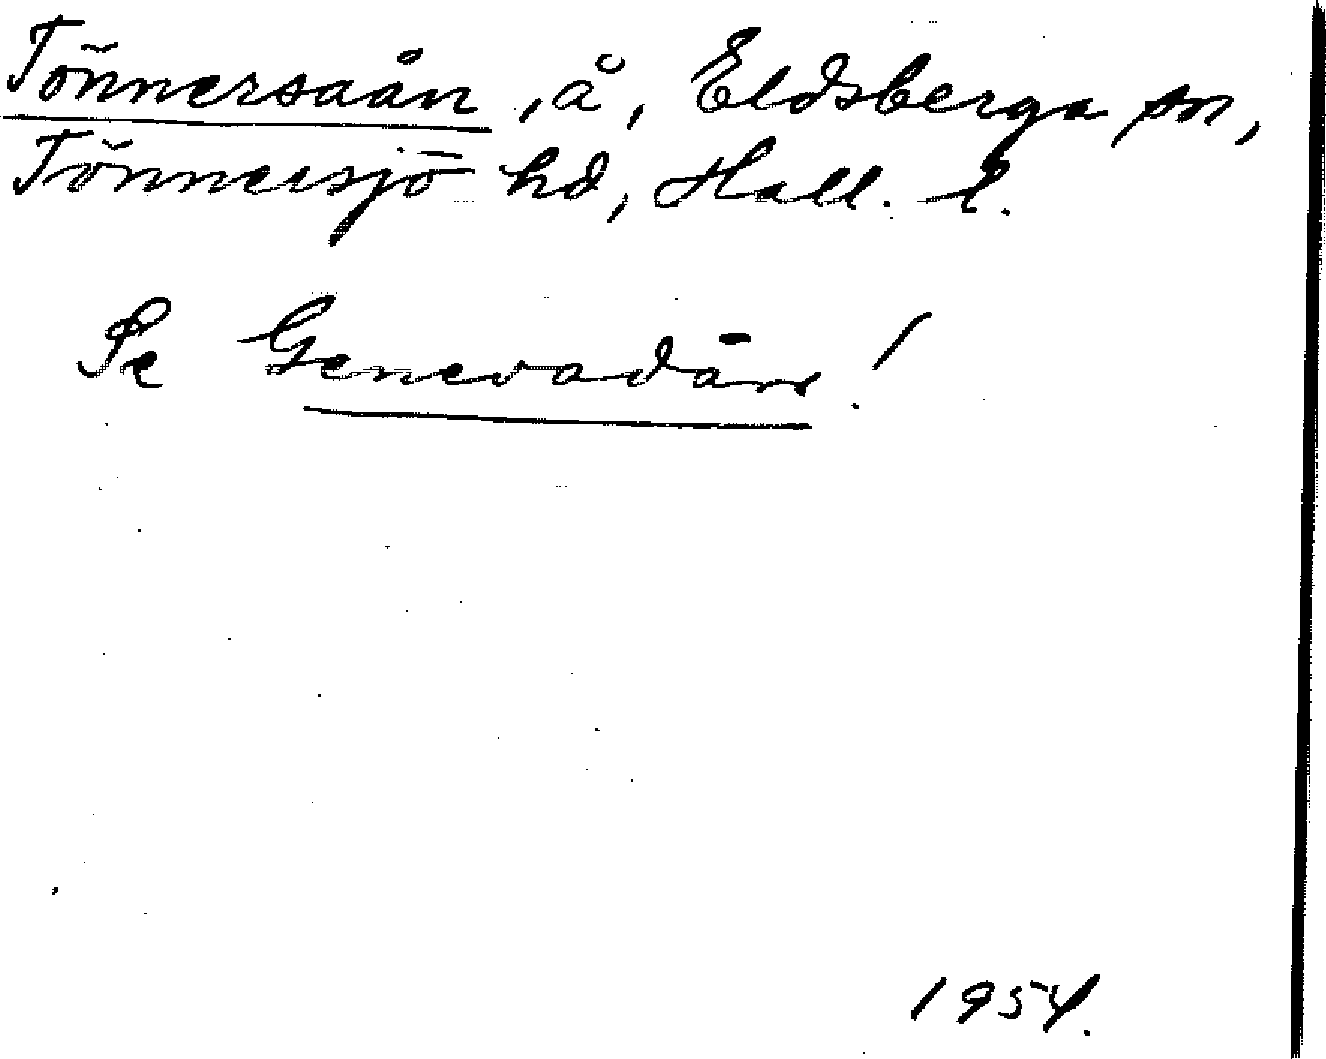 Tönnersaån, å, Eldsberga sn,
Tönnersjö hd, Hall. l.
Se Genevadån!
1954.